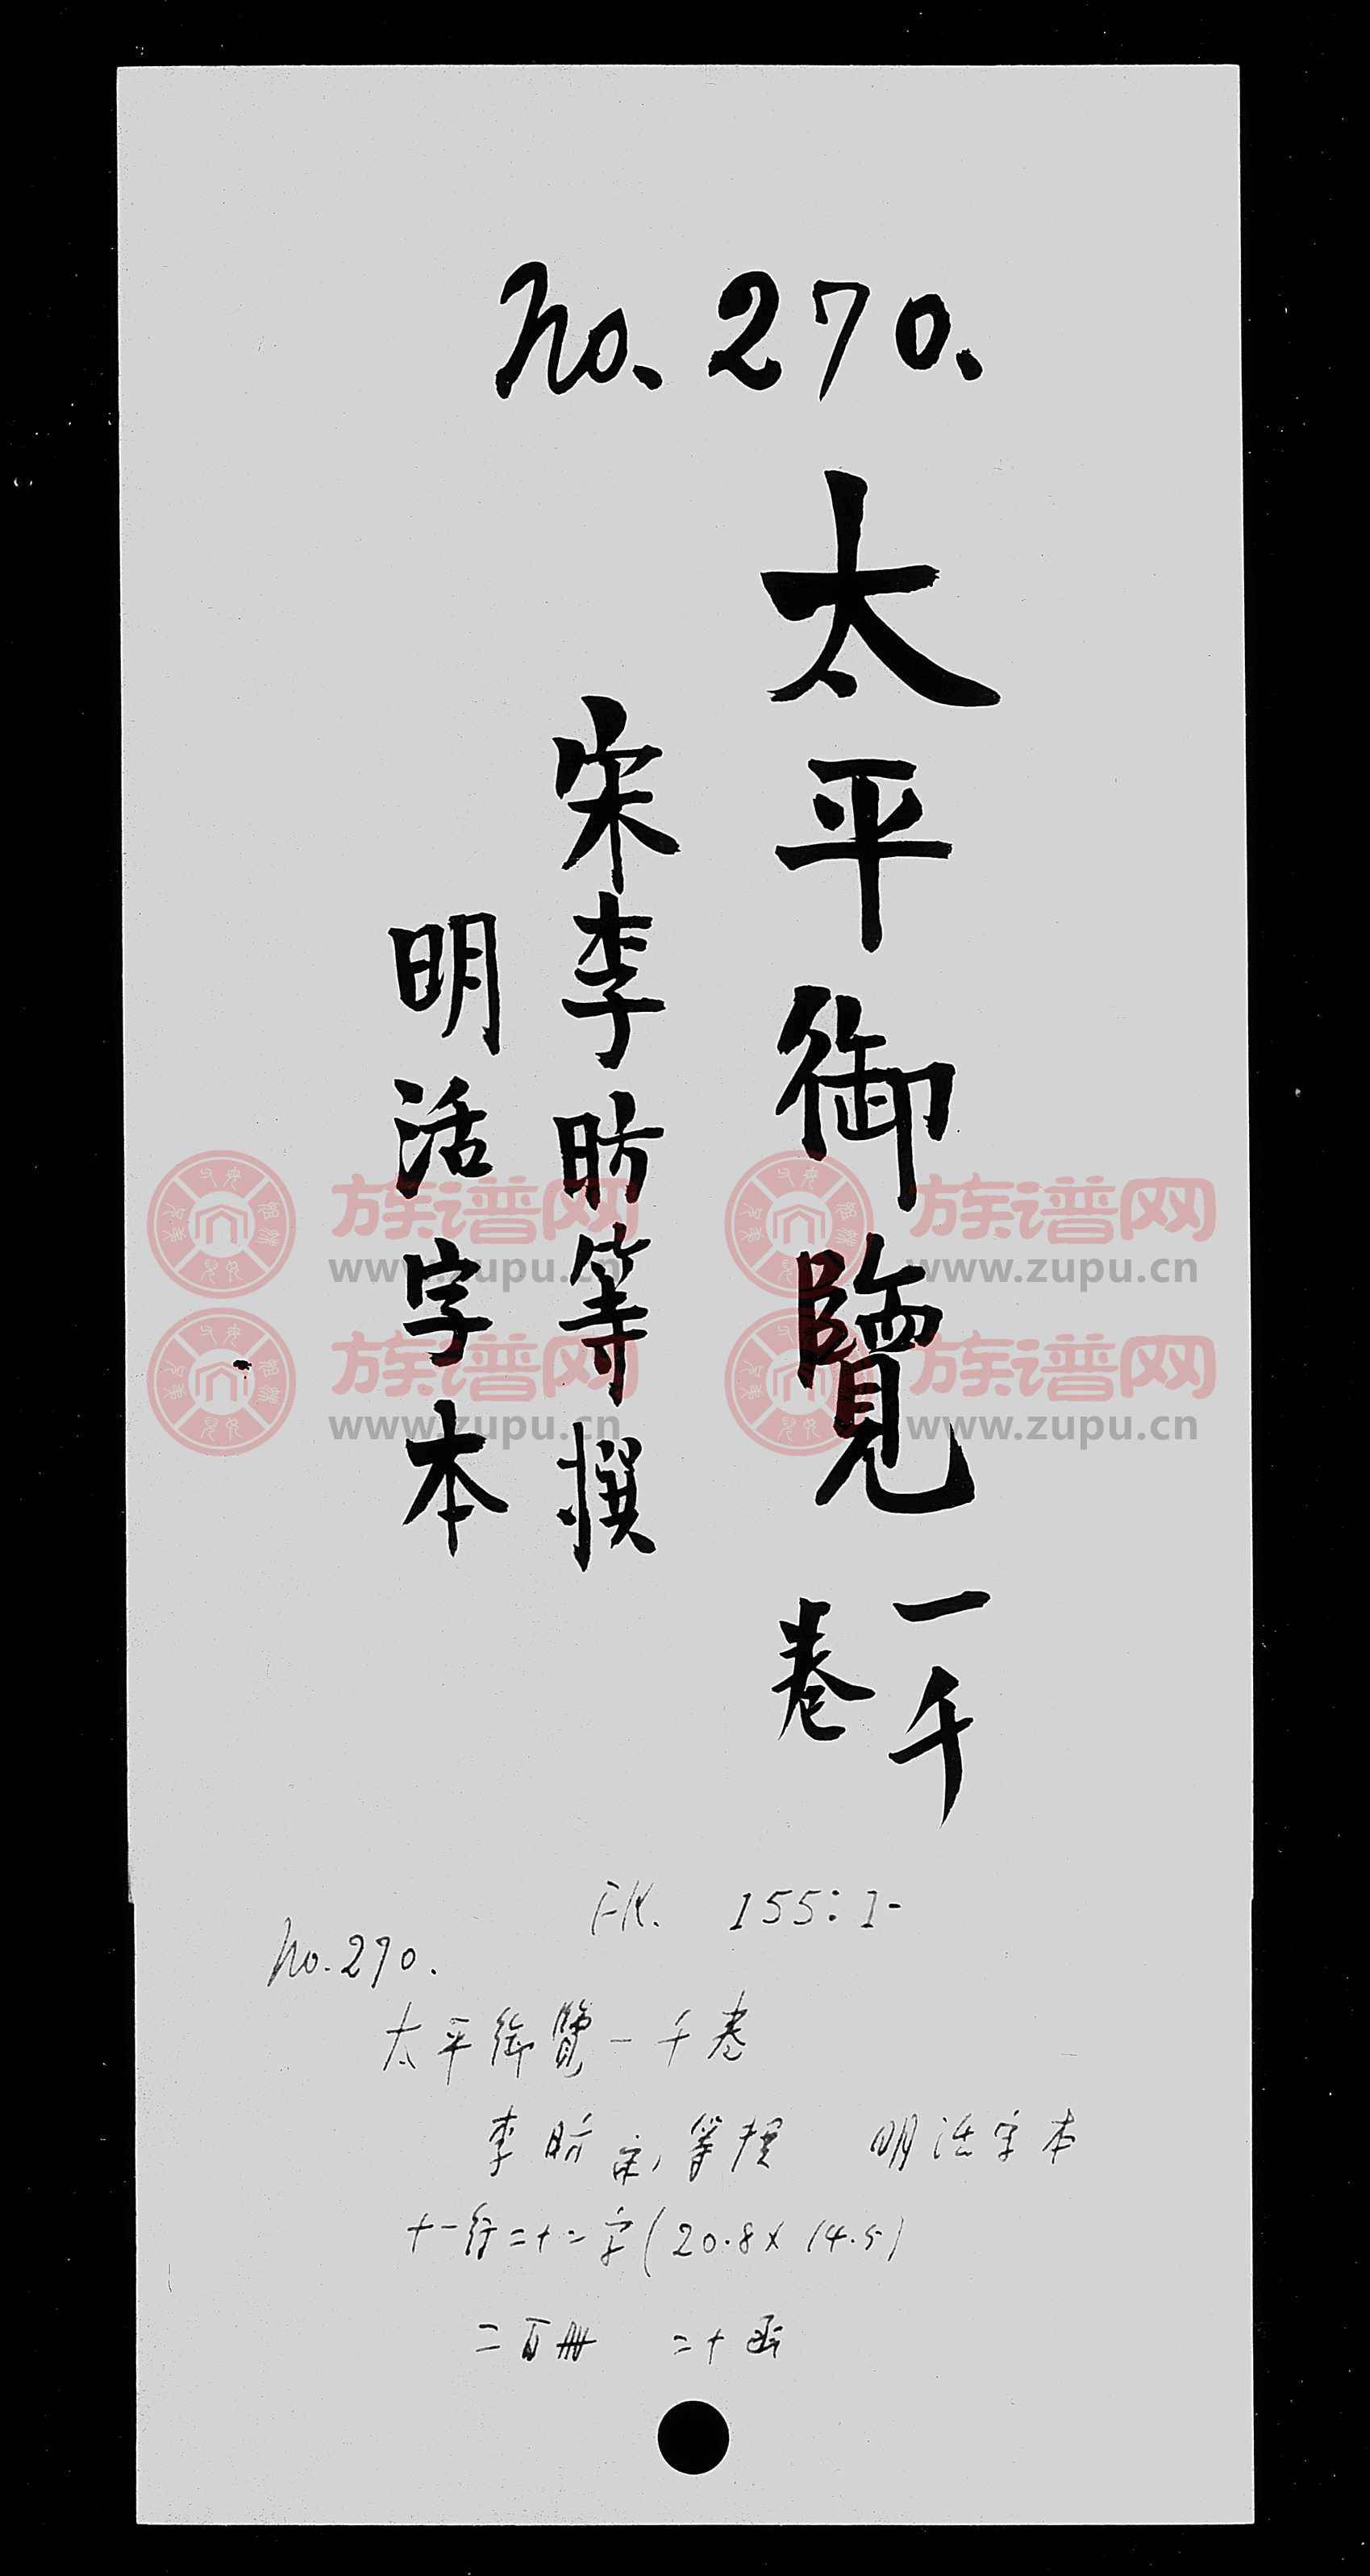 No. 270.
太平御覽一千卷
宋李昉等撰
明活字本
FK. 155:1-
No. 270.
太平御覽一千卷
李昉宋,等撰 明活字本
十一行二十二字(20.8x14.5)
二百冊 二十函
族谱网 族谱网
www.zupu.cn www.zupu.cn
族谱网 族谱网
www.zupu.cn www.zupu.cn